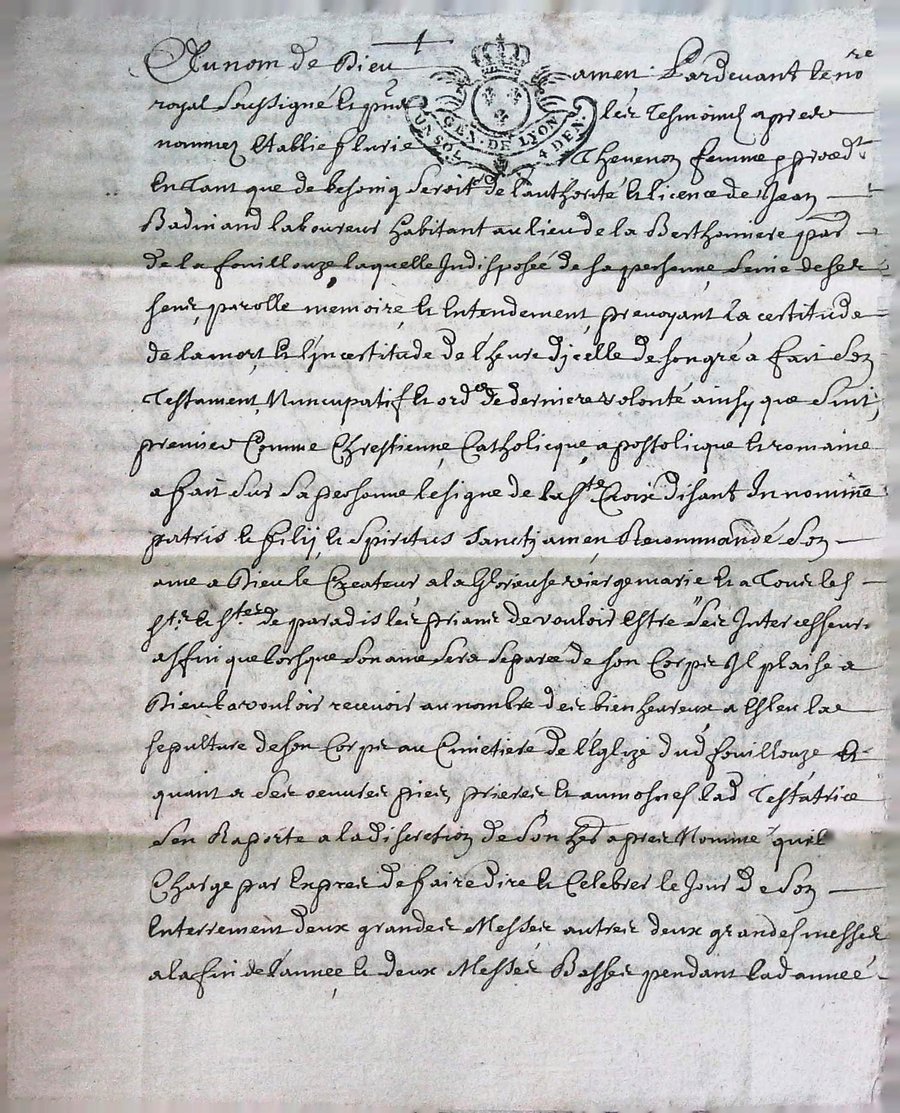 Au nom de Dieu amen Pardevant le no.re
royal soussigné et présen les tesmoings apres
nommez establie fleurie Thevenon femme & proced.t
en tant que de besoing seroit de l'authorité et licence de Jean
Badinand laboureur habitant au lieu de la Berthonniere par.
de la fouillouze, laquelle Indisposée de sa personne, seine de ses
sens, parolle memoire, et entendement, prevoyant la certitude
de la mort et l'Incertitude de l'heure d'jcelle de son gré a fait son
Testament Nuncupatif et ord.re de derniere volonté ainsy que suit,
premier Comme Chrestienne, Catholicque, apostolicque et romaine
a fait sur sa personne le signe de la s.te Croix disant In nomine
patris et filij, et spiritus sancti amen Recommandé son
ame a Dieu le Createur, a la Glorieuse vierge marie et a Tous les
s.ts et s.tes de paradis les priant de vouloir estre ses Intercesseurs
affin que lorsque son ame sera separée de son Corps Il plaise a
Dieu la vouloir recevoir au nombre des bien heureux a esleu la
sepulture de son Corps au Cimetiere de l'Eglize dud fouillouze et
quant a ses oeuvres pies, prieres et aumosnes lad Testatrice
s'en Raporte a la discretion de son her. apres Nommé quil
Charge par expres de faire dire et Celebrer le Jour de son
enterrement deux grandes Messes autres deux grandes messes
a la fin de l'année et deux Messes Basses pendant lad année
GEN. DE LYON
UN SOL 4 DEN.